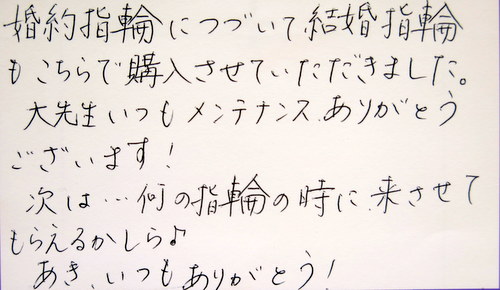 婚約指輪につづいて結婚指輪
もこちらで購入させていただきました。
大先生いつもメンテナンスありがとう
ございます!
次は…何の指輪の時に来させて
もらえるかしら♪
あき、いつもありがとう!